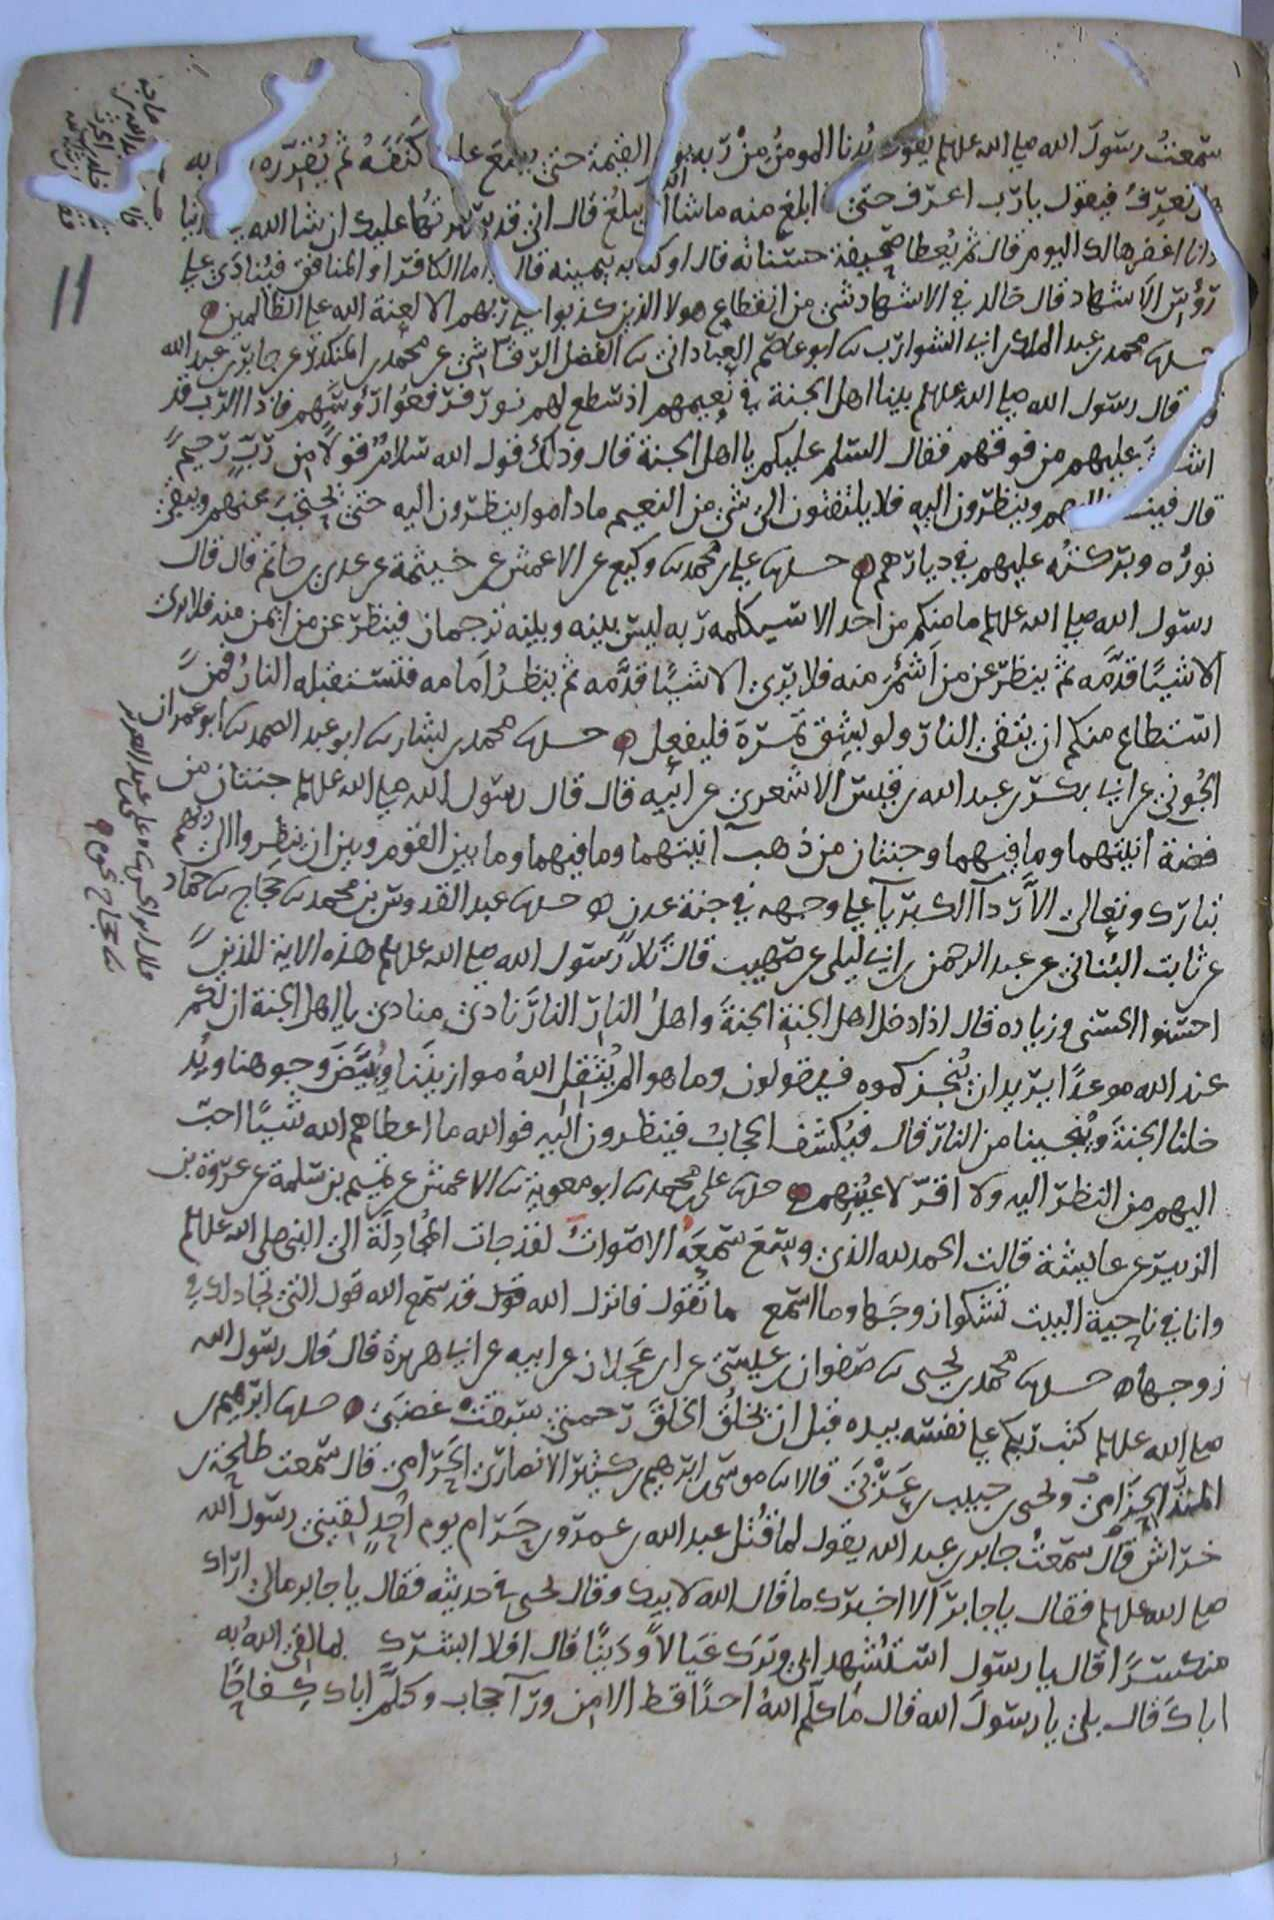 سمعت رسول الله صلى الله علىه يقول يدنا المومن من ربه يوم القيمة حتى يضع عليه كنفه ثم يقرره به
تعرف فيقول يا رب اعرف حتى اذا بلغ منه ما شا الله ان يبلغ قال انى قد سترتها عليك
وانا اغفرها لك اليوم قال ثم يعطا صحيفة حسناته قال او كتابه بيمينه قال واما الكافر او المنافق فينادى على
رؤس الاشهاد قال خالد في الاشهاد شى من انقطاع هولا الذين كذبوا على ربهم الا لعنة الله على الظالمين
محمد بن عبد الملك بن ابى الشوارب ىا ابو عاصم العباداني ىا الفضل الرقاشى عن محمد بن المنكدر عن جابر بن عبد الله
قال قال رسول الله صلى الله علىه بينا اهل الجنة في نعيمهم اذ سطع لهم نور فرفعوا رؤوسهم فاذا الرب قد
عليهم من فوقهم فقال السلم عليكم يا اهل الجنة قال وذلك قول الله سلام قولا من رب رحيم
قال فينظر اليهم وينظرون اليه فلا يلتفتون الى شى من النعيم ما داموا ينظرون اليه حتى يحتجب عنهم ويبقى
نوره وبركته عليهم في ديارهم حدىىا على بن محمد ىا وكيع عن الاعمش عن خيثمة عن عدى بن حاتم قال قال
رسول الله صلى الله علىه ما منكم من احد الا سيكلمه ربه ليس بينه وبينه ترجمان فينظر عن من ايمن منه فلا يرى
الا شيئا قدمه ثم ينظر عن من اشئم منه فلا يرى الا شيئا قدمه ثم ينظر امامه فتستقبله النار فمن
استطاع منكم ان يتقى النار ولو بشق تمرة فليفعل حدىىا محمد بن بشار ىا ابو عبد الصمد ىا ابو عمران
الجونى عن ابى بكر بن عبد الله بن قيس الاشعرى عن ابيه قال قال رسول الله صلى الله علىه جنتان من
فضة انيتهما وما فيهما وجنتان من ذهب انيتهما وما فيهما وما بين القوم وبين ان ينظروا الى ربهم
تبارك وتعالى الا ردآ الكبريآ على وجهه في جنة عدن حدىىا عبد القدوس بن محمد ىا حجاج ىا حماد
عن ثابت البنانى عن عبد الرحمن بن ابى ليلى عن صهيب قال تلا رسول الله صلى الله علىه هذه الاية للذين
احسنوا الحسنى وزيادة قال اذا دخل اهل الجنة الجنة واهل النار النار نادى منادى يا اهل الجنة ان لكم
عند الله موعدا يريد ان ينجزكموه فيقولون وما هو الم يثقل الله موازيننا ويبيض وجوهنا ويد
خلنا الجنة وينجينا من النار قال فيكشف الحجاب فينظرون اليه فوالله ما اعطاهم الله شيئا احب
اليهم من النظر اليه ولا اقر لاعينهم حدىىا على بن محمد ىا ابو معوية ىا الاعمش عن تميم بن سلمة عن عروة بن
الزبير عن عايشة قالت الحمد لله الذى وسع سمعه الاصوات لقد جات المجادلة الى النبى صلى الله علىه
وانا في ناحية البيت تشكوا زوجها وما اسمع ما تقول فانزل الله قد سمع الله قول التى تجادلك في
زوجها حدىىا محمد بن يحيى ىا صفوان بن عيسى عن ابن عجلان عن ابيه عن ابى هريرة قال قال رسول الله
صلى الله علىه كتب ربكم على نفسه بيده قبل ان يخلق الخلق رحمتى سبقت غضبى حدىىا ابرهيم بن
المنذر الحزامى ويحيى بن حبيب بن عربى قالا ىا موسى بن ابرهيم بن كثير الانصارى الحرامى قال سمعت طلحة بن
خراش قال سمعت جابر بن عبد الله يقول لما قتل عبد الله بن عمرو بن حرام يوم احد لقينى رسول الله
صلى الله علىه فقال يا جابر الا اخبرك ما قال الله لابيك وقال يحيى في حديثه فقال يا جابر مالى اراك
منكسرا قال يا رسول استشهد ابى وترك عيالا ودينا قال افلا ابشرك بما لقى الله به
اباك قال بلى يا رسول الله قال ما كلم الله احدا قط الا من ورآ حجاب وكلم اباك كفاحا
11
ىا حجاج نحوه